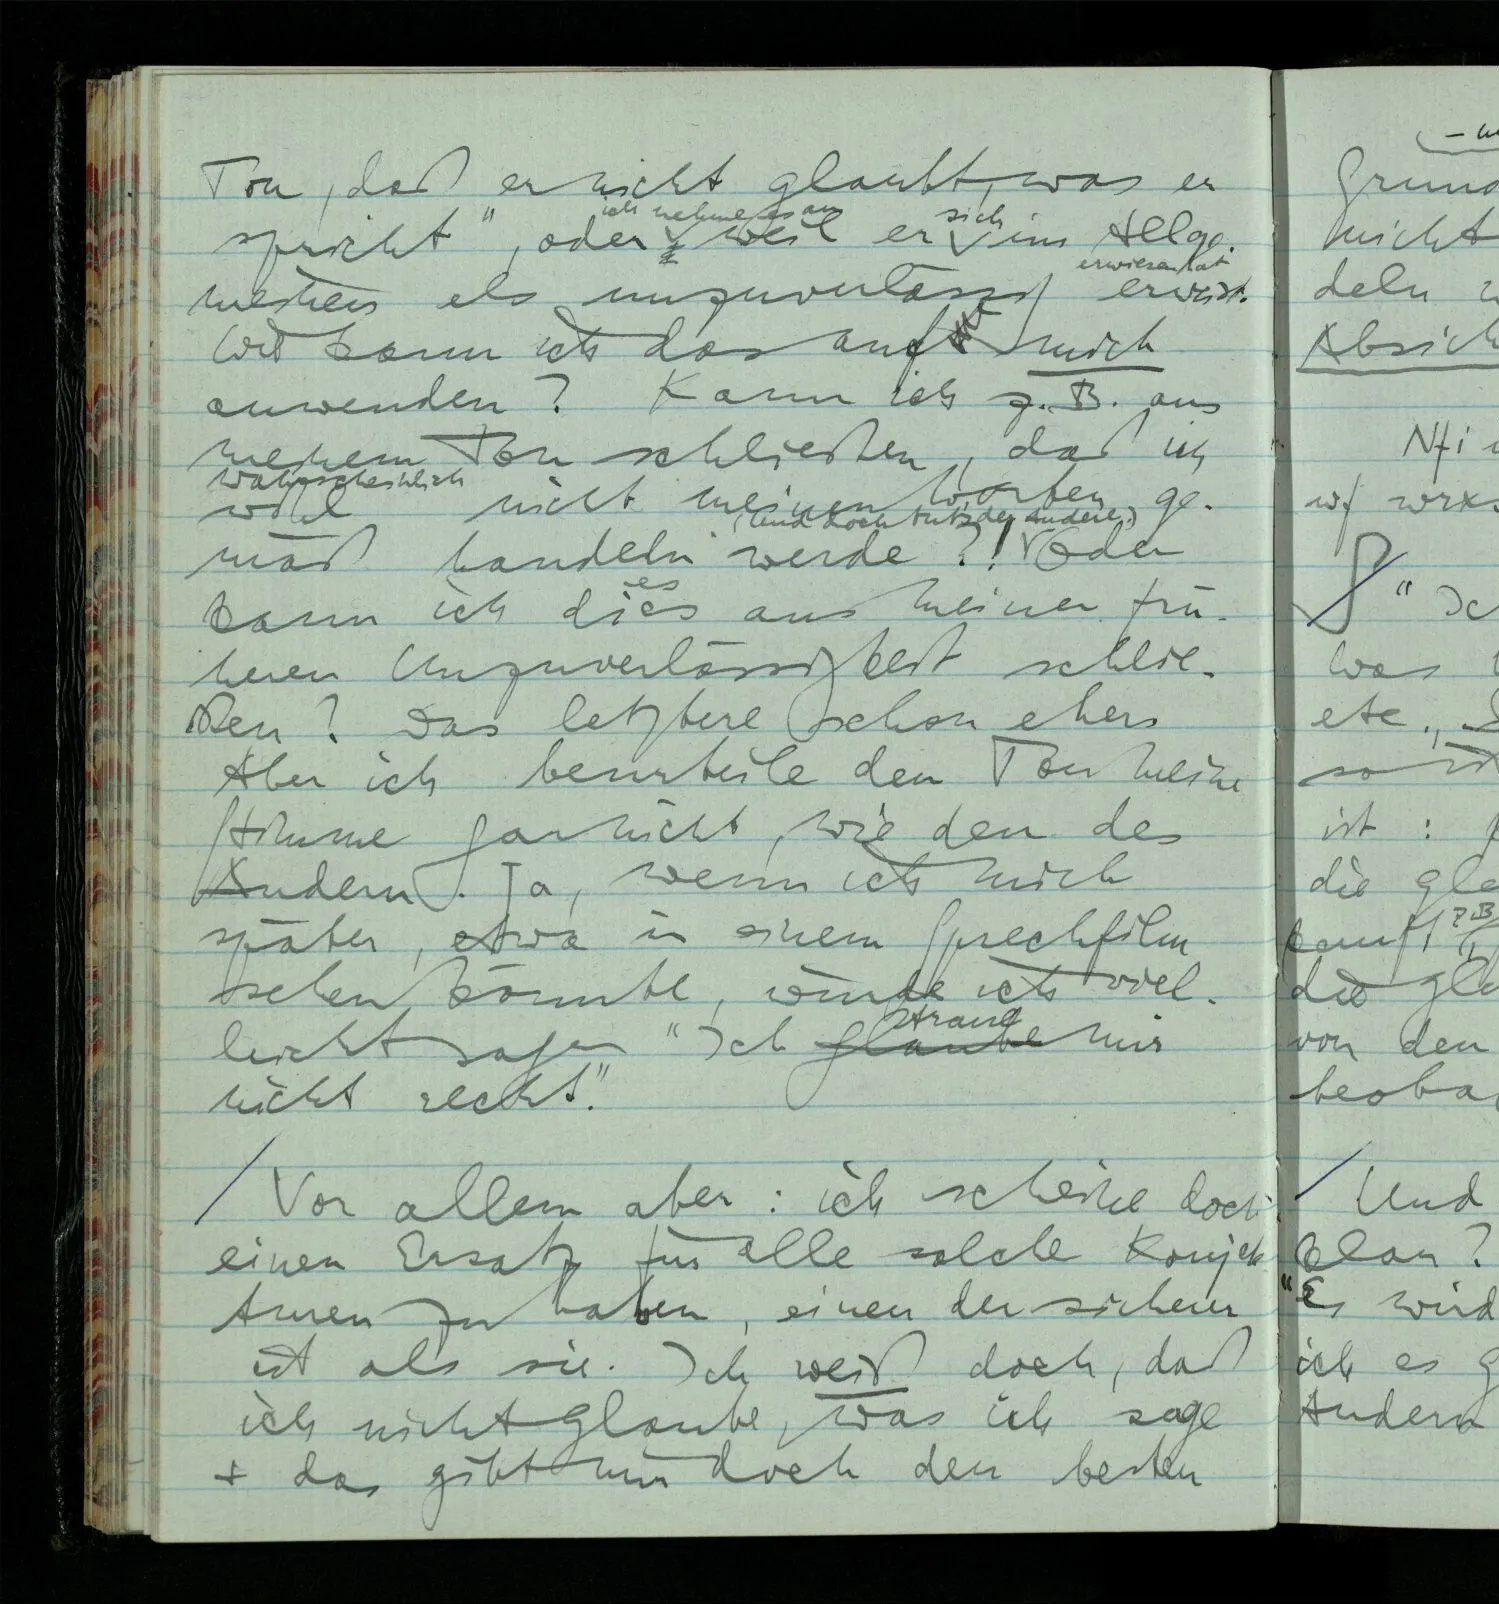 Ton, daß er nicht glaubt, was er
ich nehme es an sich
spricht", oder weil er im Allge-
erwiesen hat
meinen als unzuverlässig erweist.
Wie kann ich das auf mich
anwenden? Kann ich z.B. aus
meinem Ton schließen, daß ich
wahrscheinlich
wohl nicht meinen Worten ge-
(Und doch tut's der Andere.)
mäß handeln werde?! Oder
es
kann ich dies aus meiner frü-
heren Unzuverlässigkeit schlie-
ßen? Das letztere schon eher.
Aber ich beurteile den Ton meine
Stimme garnicht, wie den des
Andern. Ja, wenn ich mich
später, etwa in einem Sprechfilm
sehen könnte, würde ich viel-
traue
leicht sagen "Ich glaube mir
nicht recht."
/ Vor allem aber: ich scheine doch
einen Ersatz für alle solche Konjek
turen zu haben, einen der sicherer
ist als sie. Ich weiß doch, daß
ich nicht glaube, was ich sage
+ das gibt mir doch den besten
Grund
nicht
deln
Absich
Nfi
wf
§ "Ich
was
etc.,
so
ist :
die gla
kauft z.B.
die gla
von den
beoba
/ Und
klar?
"Es wird
ich es g
Andern